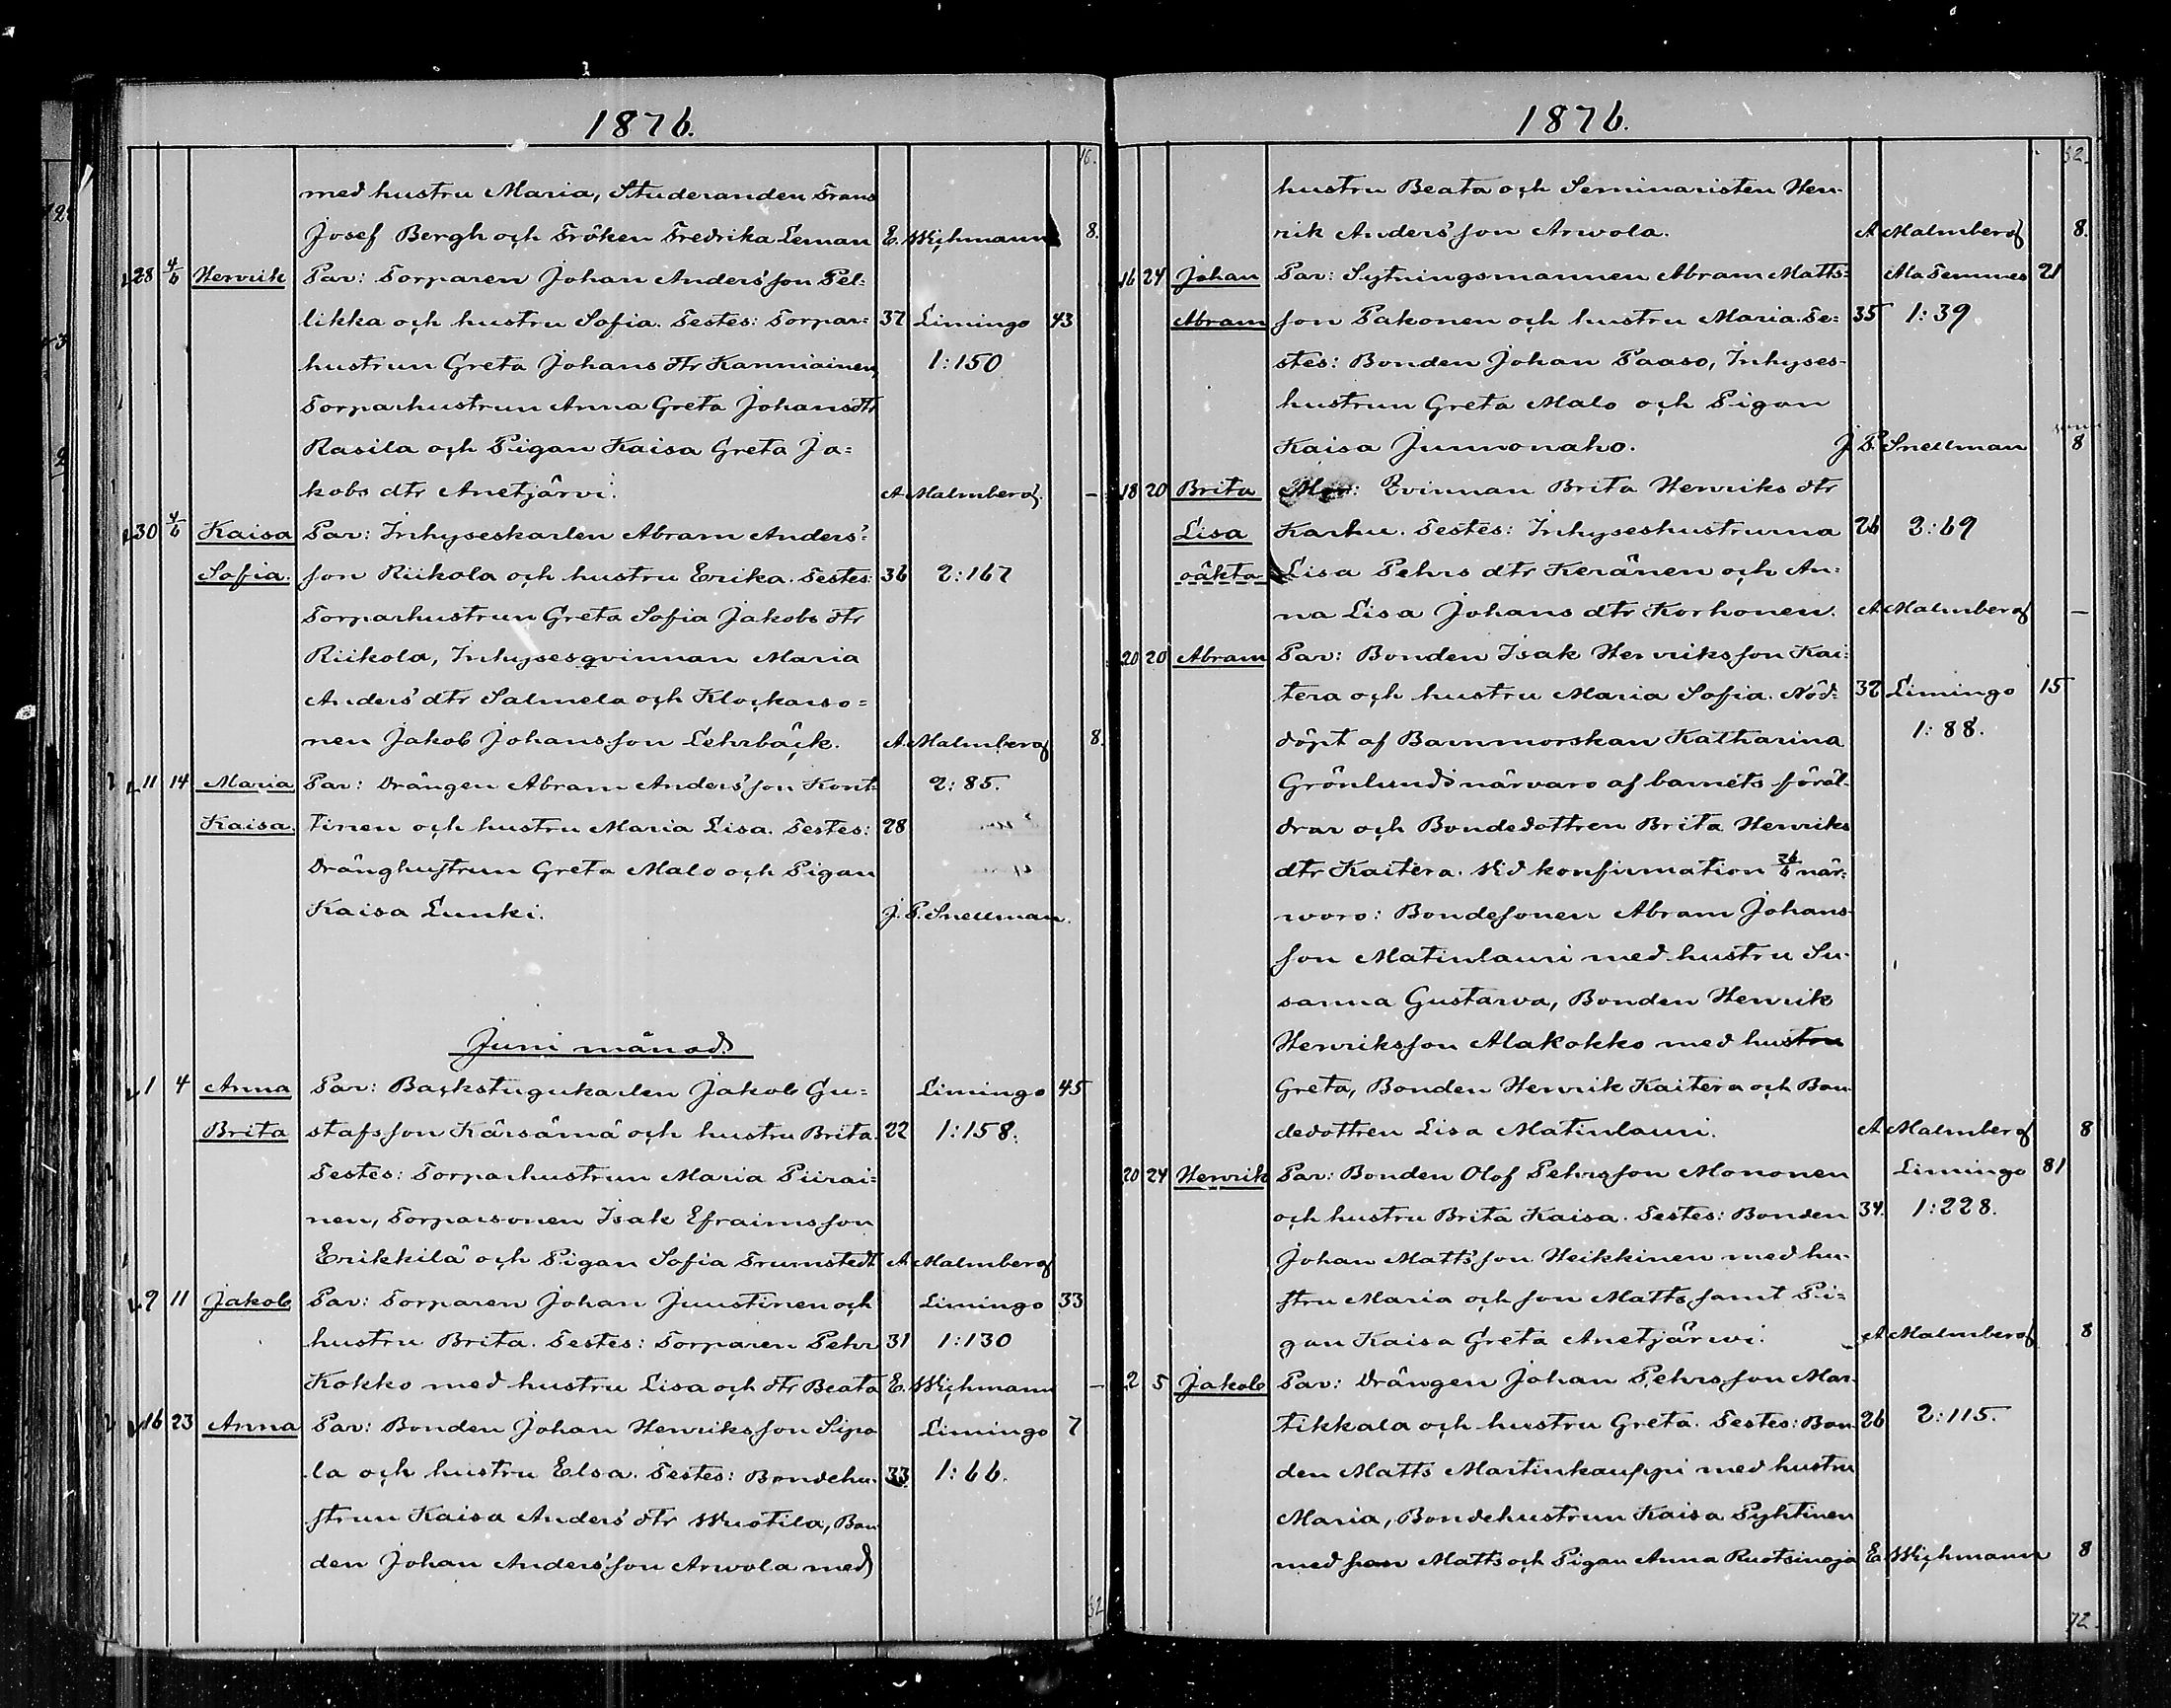 1876.
16.
med hustru Maria, Studeranden Frans
Josef Bergh och Fröken Fredrika Leman E. Wichmann 8.
28 4/6 Henrik Par: Torparen Johan Anders'son Pel=
likka och hustru Sofia. Testes: Torpar= 37 Limingo 43
hustrun Greta Johans dtr Kanniainen, 1:150
Torparhustrun Anna Greta Johansdtr
Rasila och Pigan Kaisa Greta Ja=
kobs dtr Anetjärvi. A Malmberg. —
30 4/6 Kaisa Par: Inhyseskarlen Abram Anders'=
Sofia. son Riikola och hustru Erika. Testes: 36 2:167
Torparhustrun Greta Sofia Jakobs dtr
Riikola, Inhysesqvinnan Maria
Anders' dtr Salmela och Klockarso=
nen Jakob Johansson Lehrbäck. A Malmberg 8.
11 14 Maria Par: Drängen Abram Anders'son Kont= 2:85.
Kaisa. tinen och hustru Maria Lisa. Testes: 28
Dränghustrun Greta Malo och Pigan
Kaisa Lunki. J. P. Snellman.
Juni månad
1 4 Anna Par: Backstugukarlen Jakob Gu= Limingo 45
Brita stafsson Kärsämä och hustru Brita. 22 1:158.
Testes: Torparhustrun Maria Piirai=
nen, Torparsonen Isak Efraimsson
Erikkilä och Pigan Sofia Trumstedt A Malmberg
9 11 Jakob Par: Torparen Johan Juustinen och Limingo 33
hustru Brita. Testes: Torparen Pehr 31 1:130
Kokko med hustru Lisa och dtr Beata E. Wichmann —
16 23 Anna Par: Bonden Johan Henriksson Sipo Limingo 7
la och hustru Elsa. Testes: Bondehu- 33. 1:66.
strun Kaisa Anders' dtr Wuotila, Bon
den Johan Anders'son Arwola med
52
1876.
52.
hustru Beata och Seminaristen Hen-
rik Anders'son Arwola. A Malmberg 8.
16 24 Johan Par: Sytningsmannen Abram Matts= Ala Temmes 21
Abram son Pakonen och hustru Maria. Te= 35 1:39
stes: Bonden Johan Paaso, Inhyses-
hustrun Greta Malo och Pigan
Kaisa Junnonaho. J. P. Snellman 8
18 20 Brita Qvinnan Brita Henriks dtr
Lisa Karhu. Testes: Inhyseshustrurna 26 3:69
oäkta Lisa Pehrs dtr Keränen och An=
na Lisa Johans dtr Korhonen. A Malmberg —
20 20 Abram Par: Bonden Isak Henriksson Kai=
tera och hustru Maria Sofia. Nöd= 32 Limingo 15
döpt af Barnmorskan Katharina 1:88.
Grönlund i närvaro af barnets föräl-
drar och Bondedottren Brita Henriks
dtr Kaitera. Vid konfirmation 26/6 när=
woro: Bondesonen Abram Johans-
son Matinlauri med hustru Su-
sanna Gustava, Bonden Henrik
Henriksson Alakokko med hustru
Greta, Bonden Henrik Kaitera och Bon-
dedottren Lisa Matinlauri. A Malmberg 8
20 24 Henrik Par: Bonden Olof Pehrsson Mononen Limingo 81
och hustru Brita Kaisa. Testes: Bonden 34. 1:228.
Johan Matts'son Heikkinen med hu-
stru Maria och son Matts, samt Pi=
gan Kaisa Greta Anetjärwi. A Malmberg 8
2 5 Jakob Par: Drängen Johan Pehrsson Mar-
tikkala och hustru Greta. Testes: Bon- 26 2:115.
den Matts Martinkauppi med hustru
Maria, Bondehustrun Kaisa Pyhtinen
med son Matts och Pigan Anna Ruotsinoja E. Wichmann 8
72.